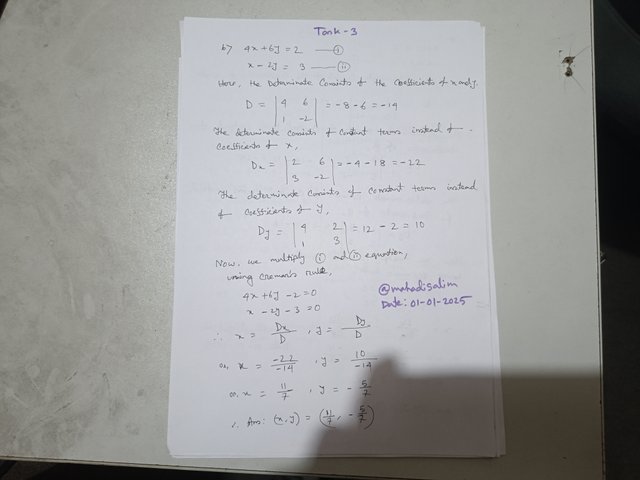 Task-3
b) 4x+6y = 2 —— (i)
x - 2y = 3 —— (ii)
Here, the Determinate Consists of the Coefficients of x and y.
D = | 4 6 | = -8 - 6 = -14
| 1 -2 |
The determinate consists of Constant terms instead of
Coefficients of x,
Dx = | 2 6 | = -4 - 18 = -22
| 3 -2 |
The determinate Consists of Constant terms instead
of coefficients of y,
Dy = | 4 2 | = 12 - 2 = 10
| 1 3 |
Now, we multiply (i) and (ii) equation,
using Cramar's rule,
4x + 6y - 2 = 0
x - 2y - 3 = 0
@mahadisalim
Date: 01-01-2025
∴ x = Dx/D , y = Dy/D
or, x = -22/-14 , y = 10/-14
or, x = 11/7 , y = - 5/7
∴ Ans: (x, y) = (11/7, - 5/7)